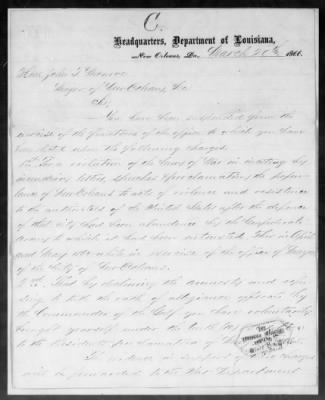 C.
Headquarters, Department of Louisiana,
New Orleans, La. March 20th 1866.
Hon. John T. Monroe
Mayor of New Orleans, La
Sir,
You have been suspended from the
exercise of the functions of the office to which you have
been elected upon the following charges.
1st For a violation of the laws of War in inciting by
incendiary letters, speeches & proclamations, the popu-
lace of New Orleans to acts of violence and resistance
to the authorities of the United States after the defence
of that city had been abandoned by the Confederate
army to which it had been entrusted. This in April
and May 1862 while in exercise of the office of Mayor
of the City of New Orleans.
2nd That by declining the amnesty and refu-
sing to take the oath of allegiance offered by
the Commander of the Gulf you have voluntarily
brought yourself under the
to the Presidents proclamation of
The evidence in support of these charges
will be forwarded to the War Department